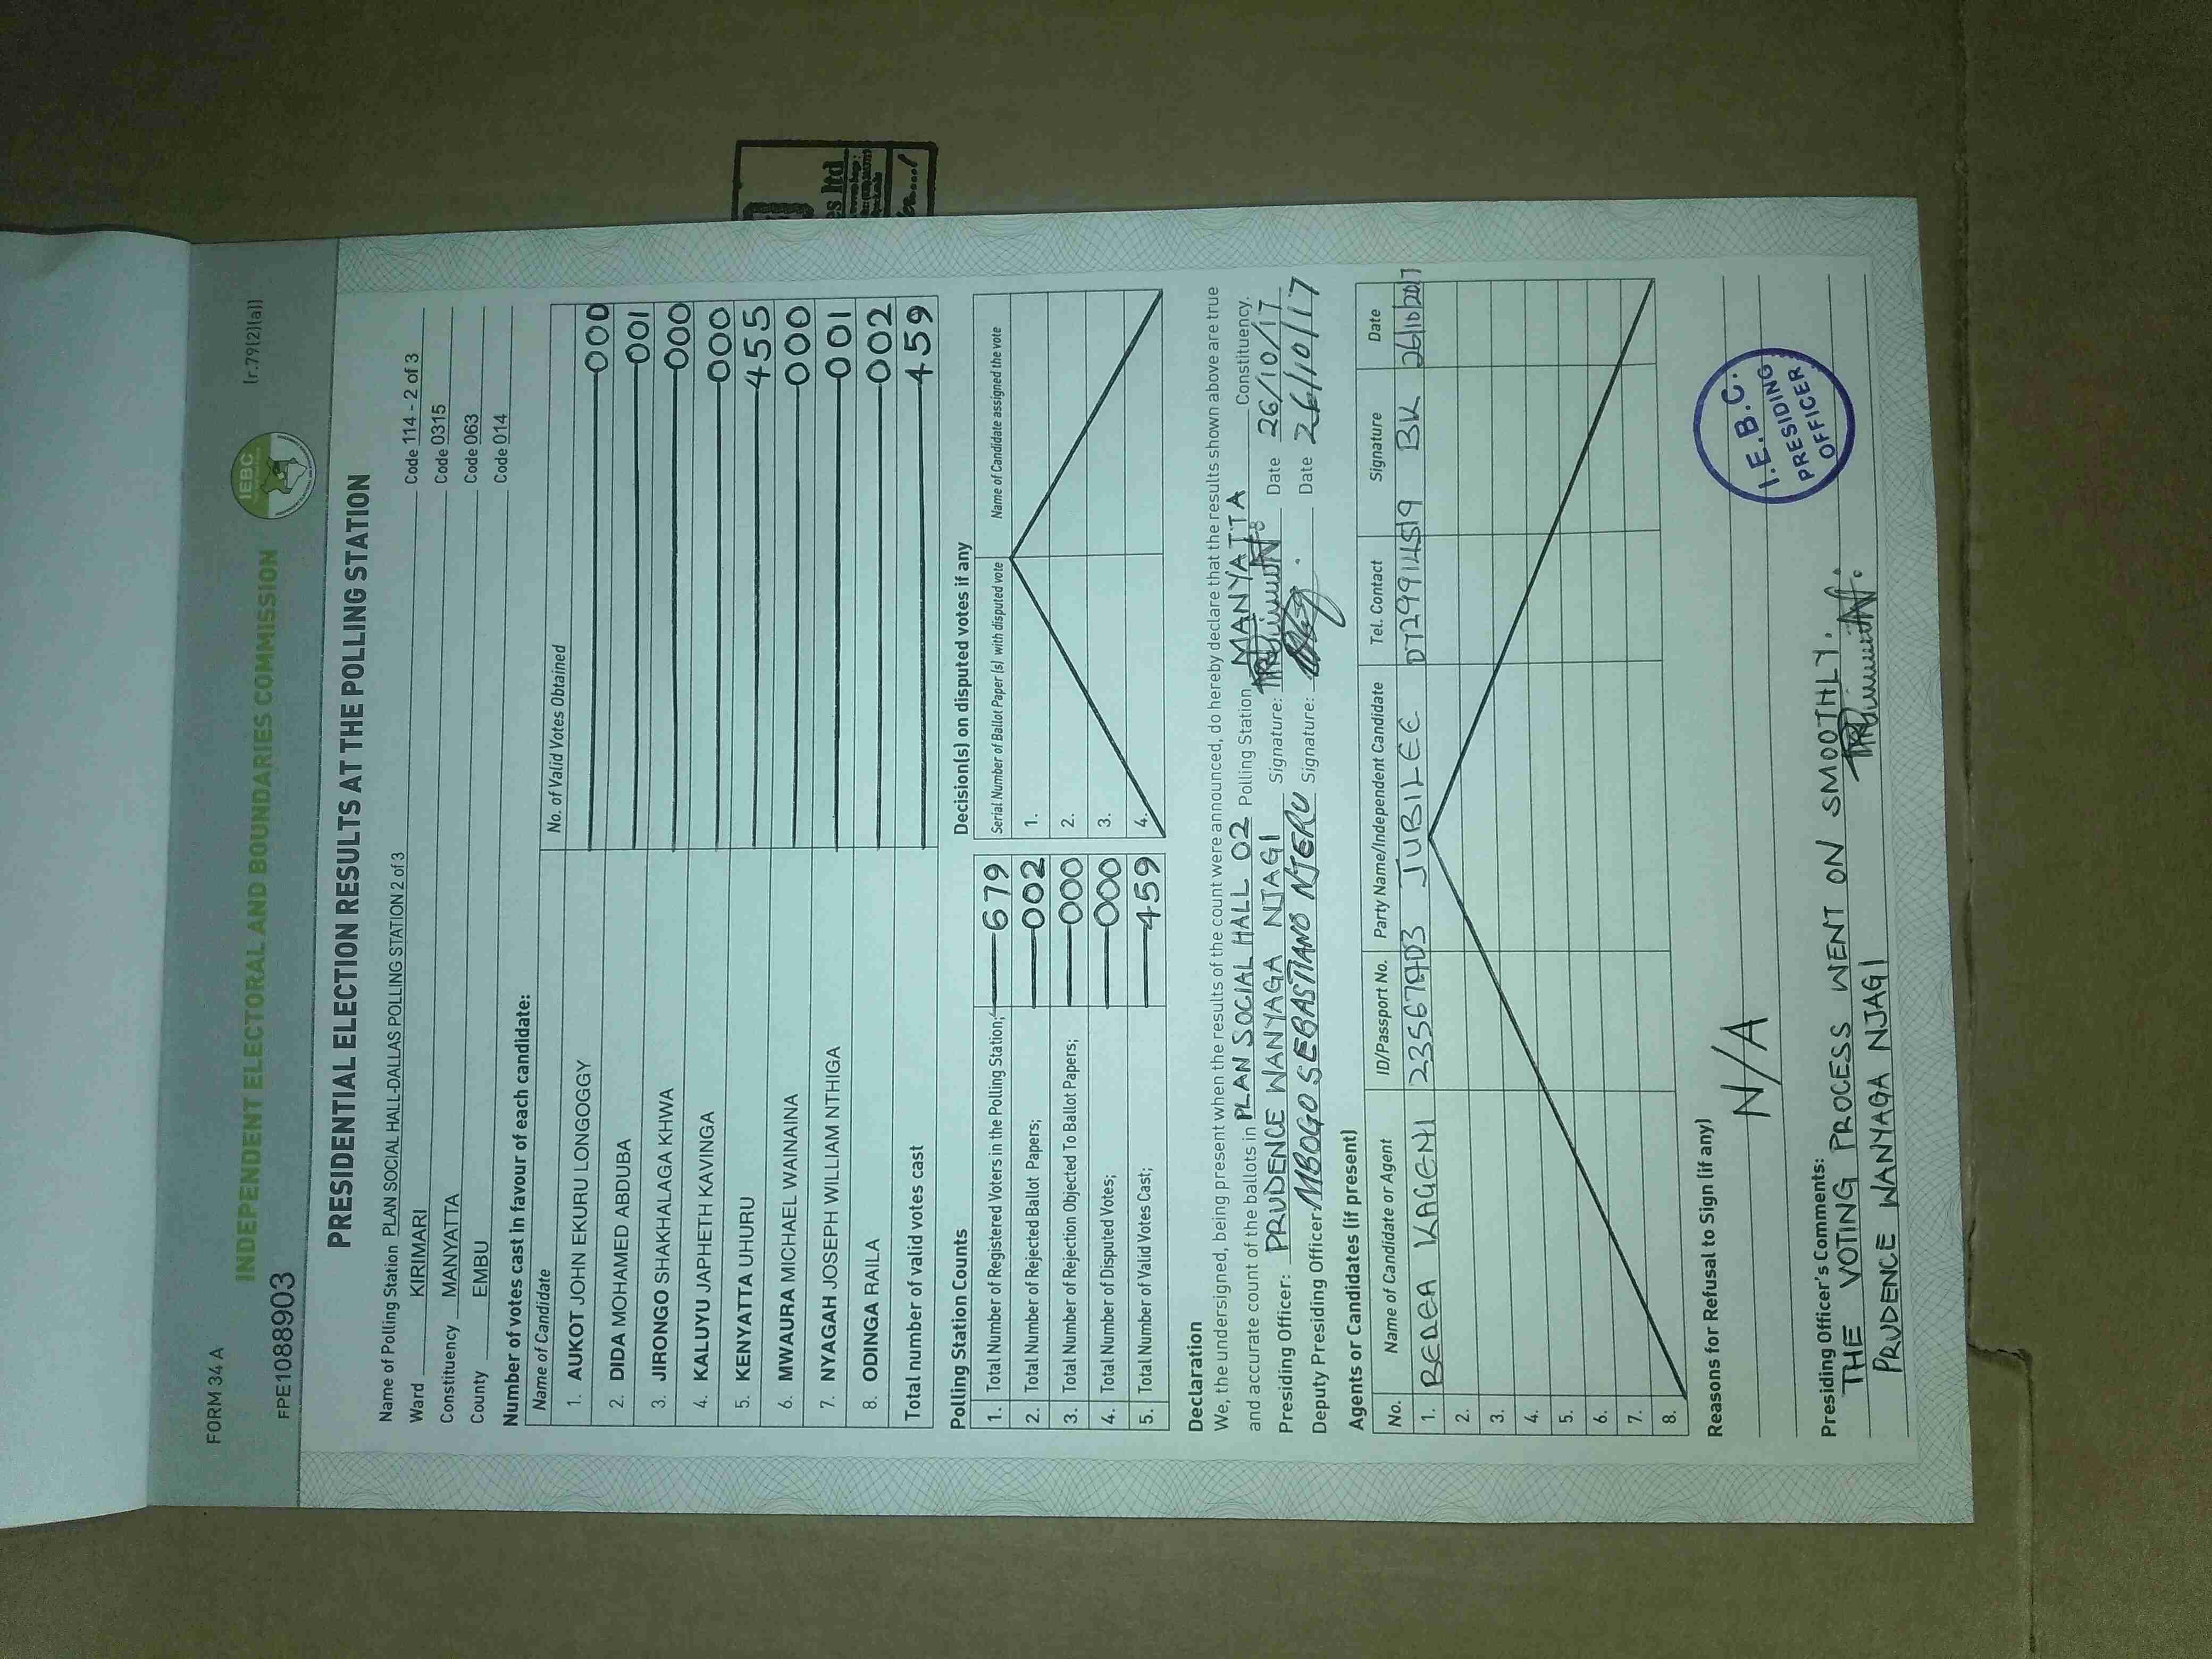 FORM 34 A
(r.79(2)(a))
INDEPENDENT ELECTORAL AND BOUNDARIES COMMISSION
IEBC
FPE1088903
PRESIDENTIAL ELECTION RESULTS AT THE POLLING STATION
Name of Polling Station PLAN SOCIAL HALL-DALLAS POLLING STATION 2 of 3 Code 114 - 2 of 3
Ward KIRIMARI Code 0315
Constituency MANYATTA Code 063
County EMBU Code 014
Number of votes cast in favour of each candidate:
Name of Candidate No. of Valid Votes Obtained
1. AUKOT JOHN EKURU LONGOGGY 000
2. DIDA MOHAMED ABDUBA 001
3. JIRONGO SHAKHALAGA KHWA 000
4. KALUYU JAPHETH KAVINGA 000
5. KENYATTA UHURU 455
6. MWAURA MICHAEL WAINAINA 000
7. NYAGAH JOSEPH WILLIAM NTHIGA 001
8. ODINGA RAILA 002
Total number of valid votes cast 459
Polling Station Counts
1. Total Number of Registered Voters in the Polling Station; 679
2. Total Number of Rejected Ballot Papers; 002
3. Total Number of Rejection Objected To Ballot Papers; 000
4. Total Number of Disputed Votes; 000
5. Total Number of Valid Votes Cast; 459
Decision(s) on disputed votes if any
Serial Number of Ballot Paper (s) with disputed vote Name of Candidate assigned the vote
1.
2.
3.
4.
Declaration
We, the undersigned, being present when the results of the count were announced, do hereby declare that the results shown above are true
and accurate count of the ballots in PLAN SOCIAL HALL 02 Polling Station MANYATTA Constituency.
Presiding Officer: PRUDENCE WANYAGA NJAGI Signature: Date 26/10/17
Deputy Presiding Officer MBOGO SEBASTIANO NJERU Signature: Date 26/10/17
Agents or Candidates (if present)
No. Name of Candidate or Agent ID/Passport No. Party Name/Independent Candidate Tel. Contact Signature Date
1. KAGENI JUBILEE BK 26/10/2017
2.
3.
4.
5.
6.
7.
8.
Reasons for Refusal to Sign (if any)
N/A
I.E.B.C.
PRESIDING
OFFICER
Presiding Officer's Comments:
THE VOTING PROCESS WENT ON SMOOTHLY.
PRUDENCE WANYAGA NJAGI